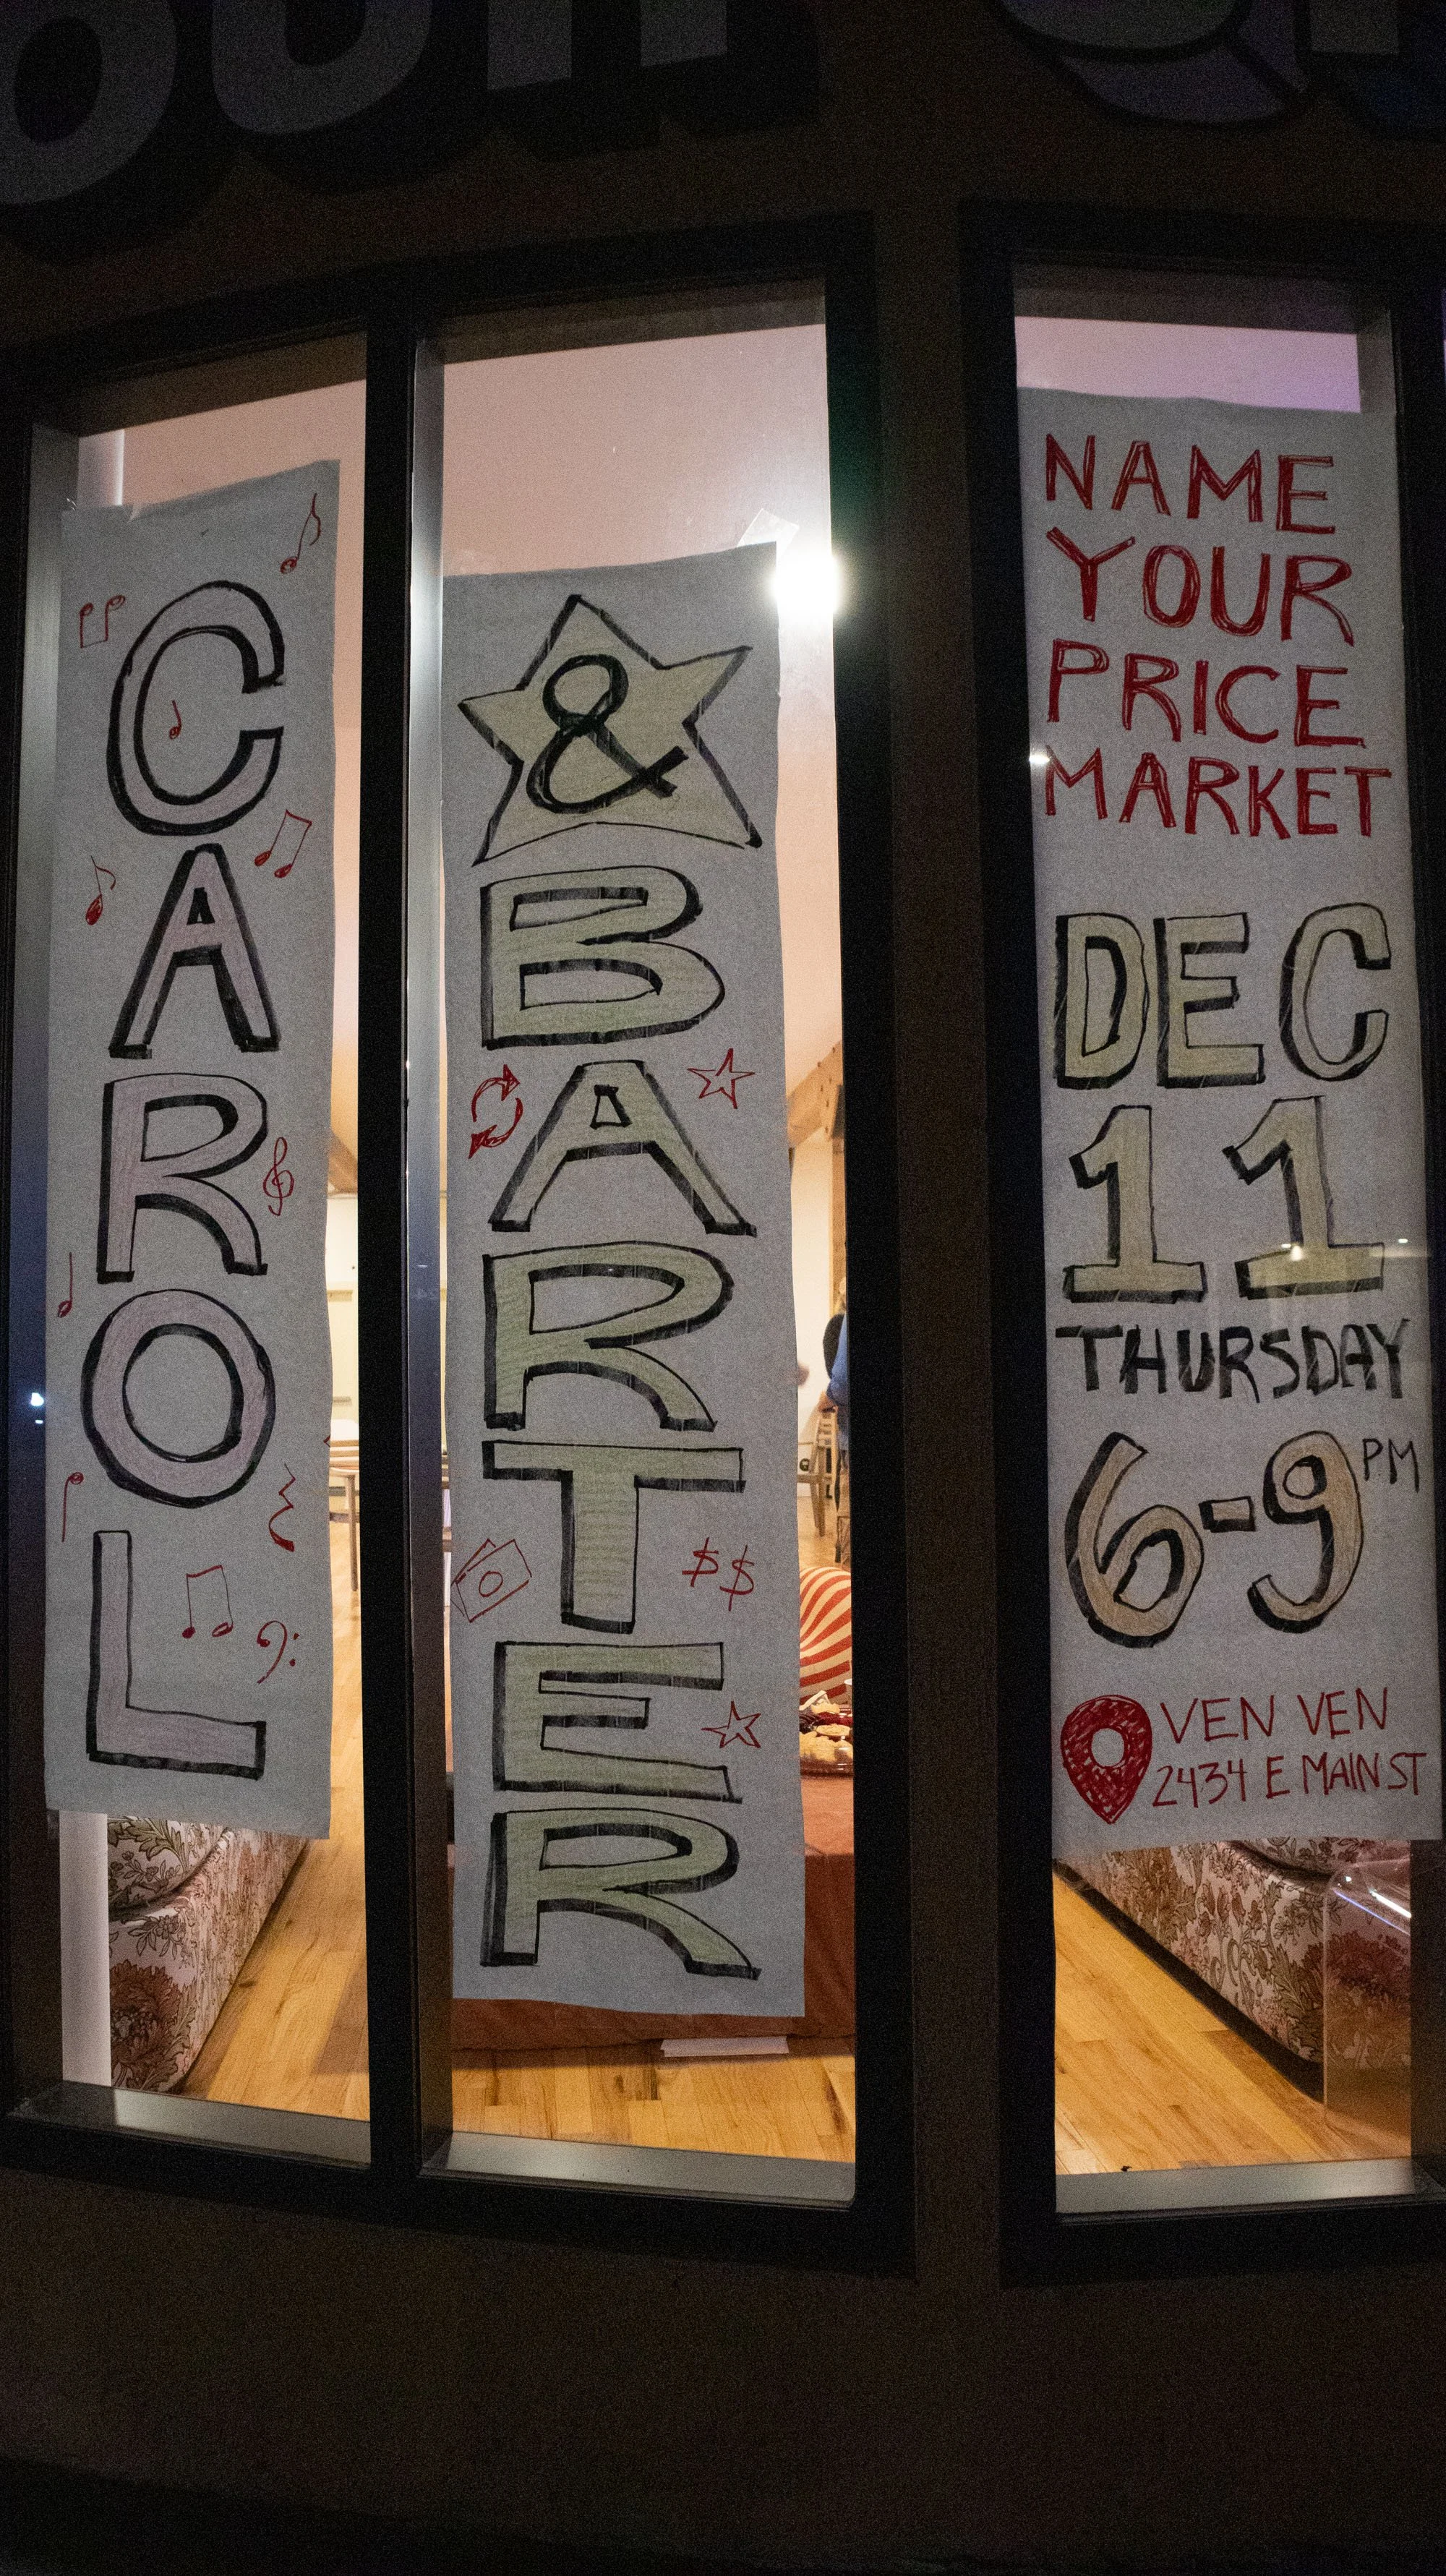 CAROL
&
BARTER
NAME
YOUR
PRICE
MARKET
DEC
11
THURSDAY
6-9 PM
VEN VEN
2434 E MAIN ST
$$